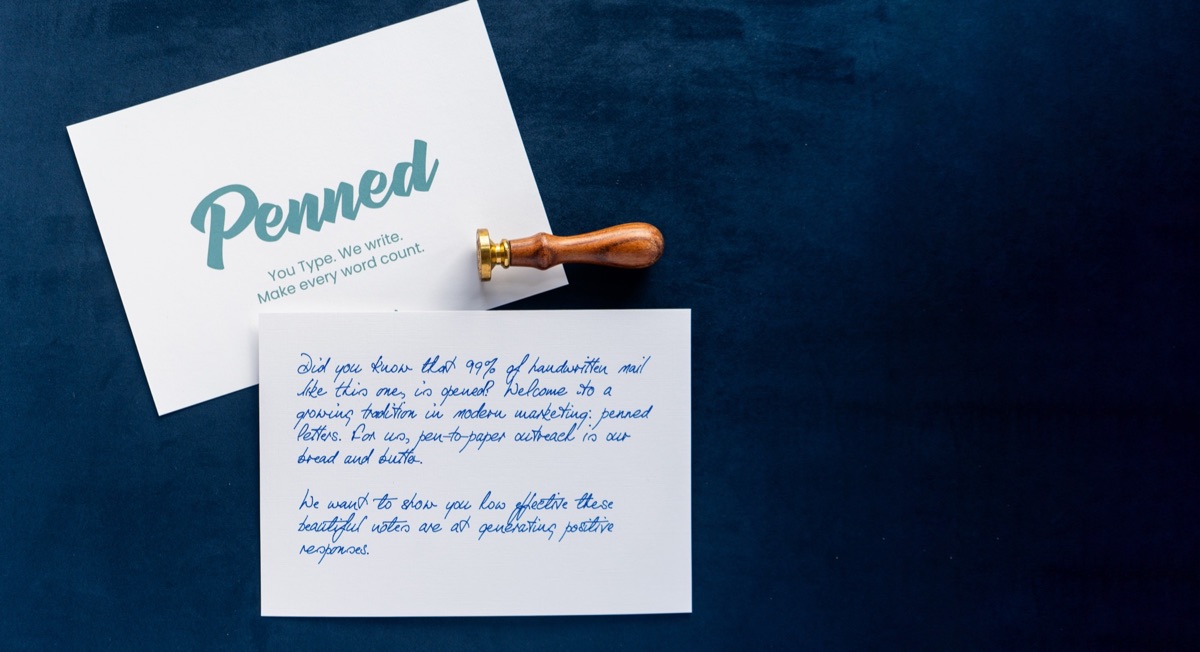 Penned
You Type. We write.
Make every word count.
Did you know that 99% of handwritten mail
like this one, is opened? Welcome to a
growing tradition in modern marketing: penned
letters. For us, pen-to-paper outreach is our
bread and butter.
We want to show you how effective these
beautiful notes are at generating positive
responses.